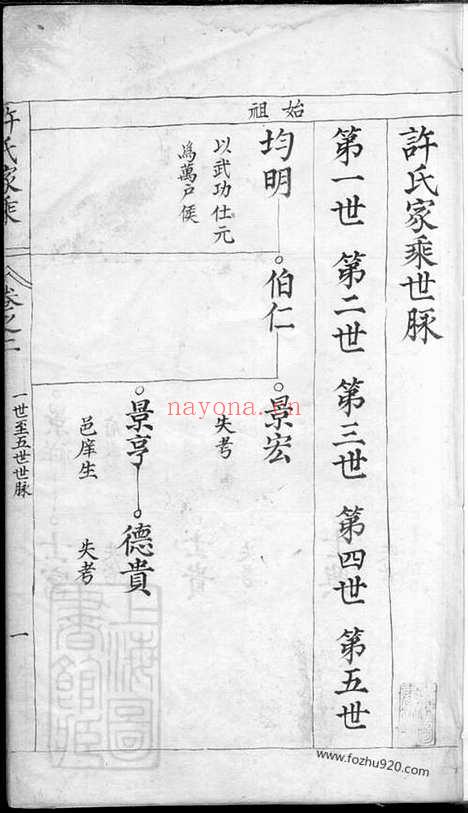 許氏家乘世脉
第一世 第二世 第三世 第四世 第五世
始祖
均明 伯仁 景宏
以武功仕元
為萬戶侯
失考
景亨 德貴
邑庠生 失考
許氏家乘 卷之二 一世至五世世脉 一
上海圖書館藏
nayona.cn
www.fozhu920.com